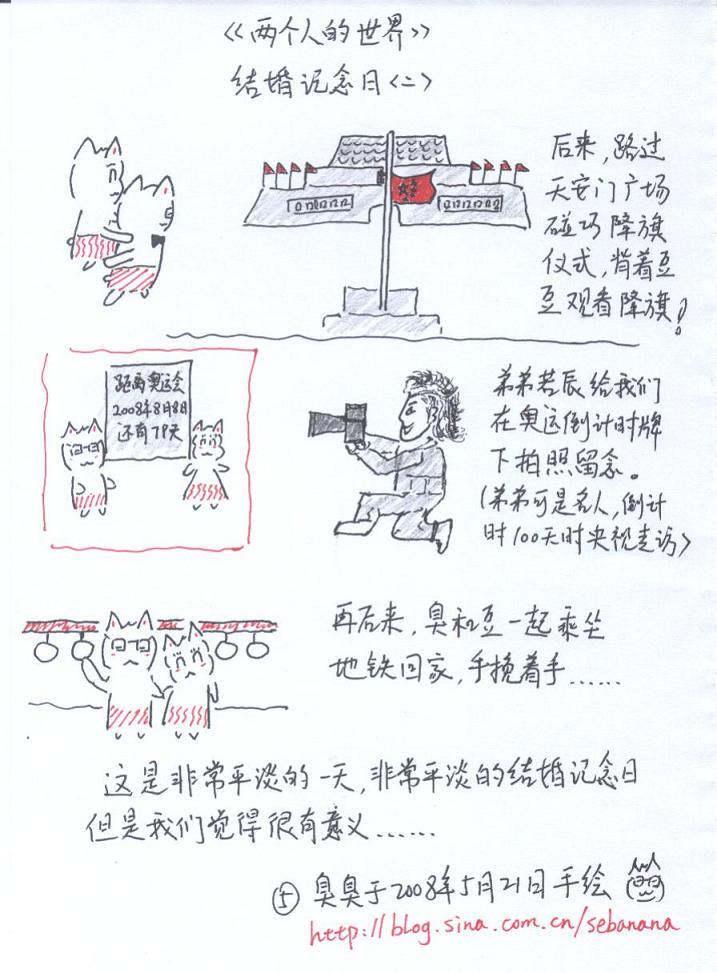 《两个人的世界》
结婚记念日〈二〉
后来，路过
天安门广场
碰巧降旗
仪式，背着豆
豆观看降旗！
距离奥运会
2008年8月8日
还有79天
弟弟若辰给我们
在奥运倒计时牌
下拍照留念。
（弟弟可是名人，倒计
时100天时央视走访〉
再后来，臭和豆一起乘坐
地铁回家，手挽着手……
这是非常平淡的一天，非常平淡的结婚记念日
但是我们觉得很有意义……
⑤ 臭臭于2008年5月21日手绘
http://blog.sina.com.cn/sebanana